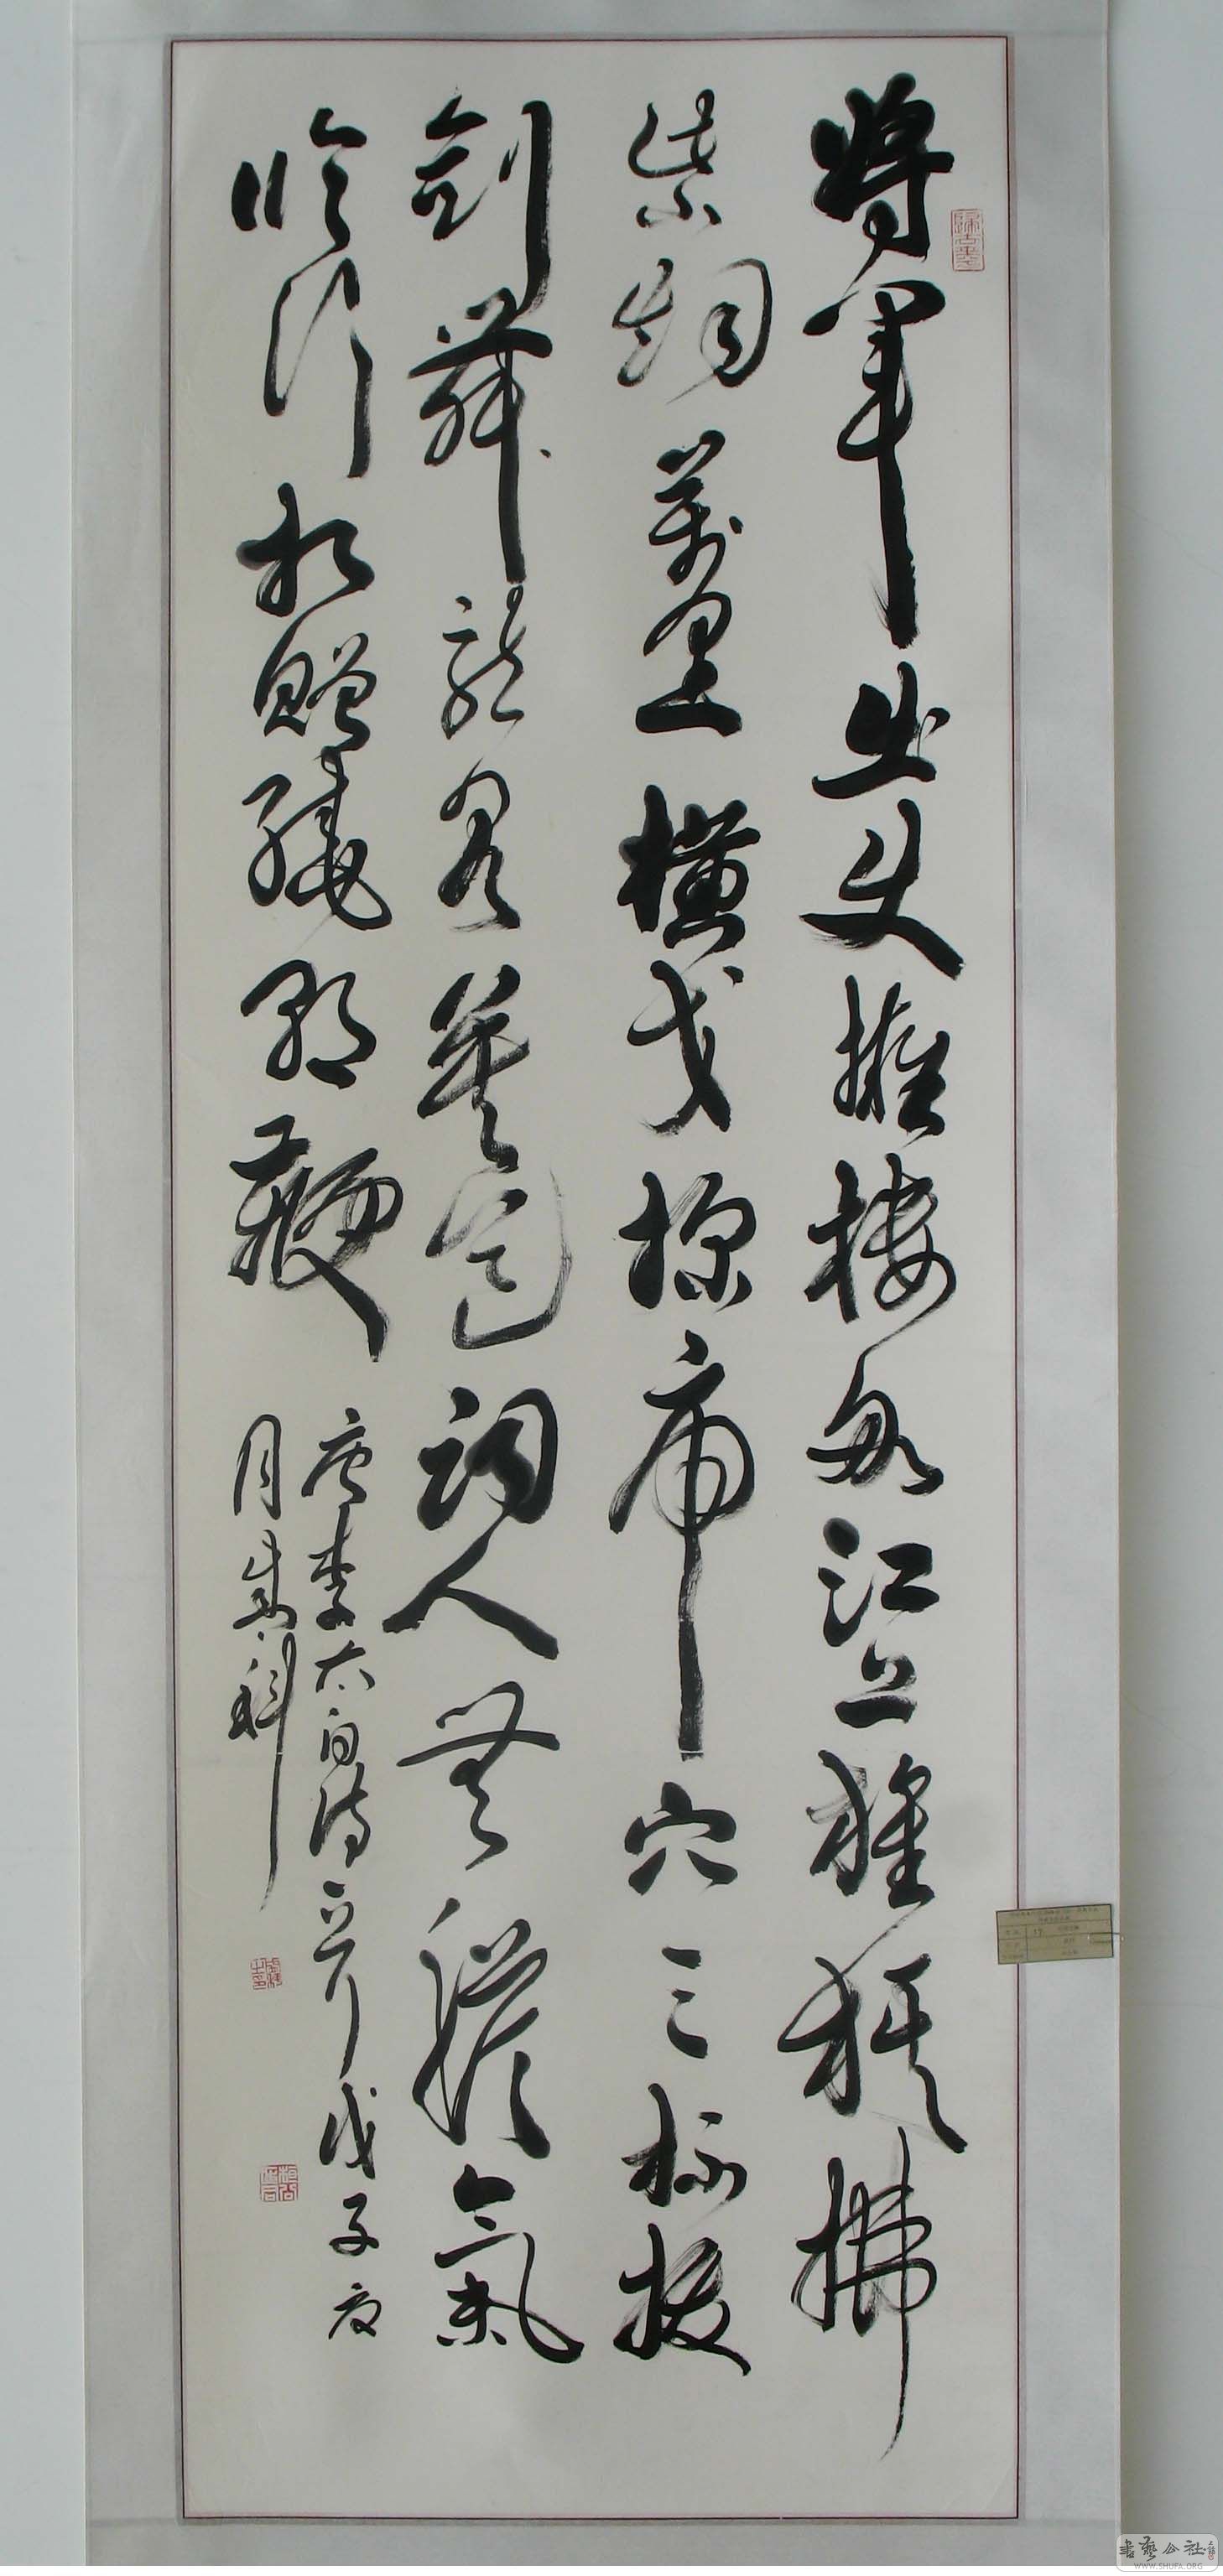 將軍出使擁樓船江上旌旗拂
紫烟萬里橫戈探虎穴三杯拔
劍舞龍泉莫道詞人無膽氣
臨行相贈繞朝鞭
唐李太白詩一首戊子夏
月
书艺公社
WWW.SHUFA.ORG